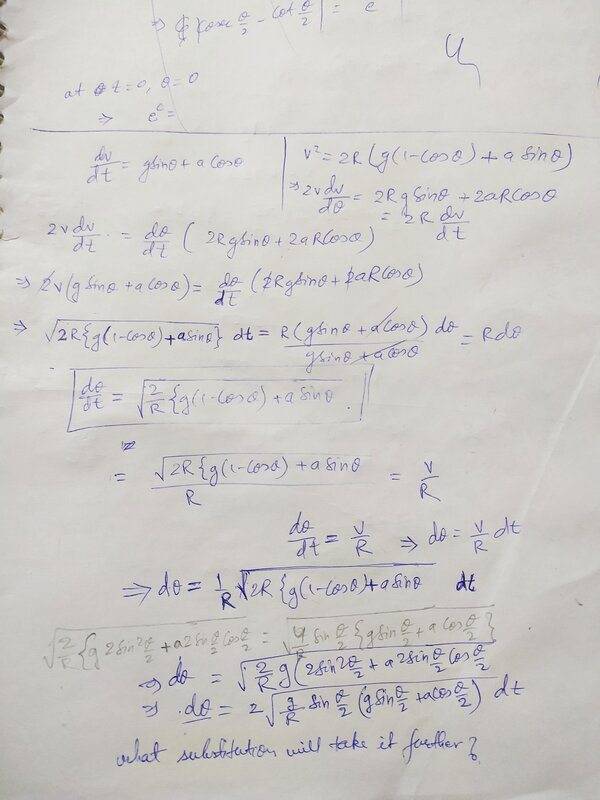 ⇒ ¢ |cosec θ/2 - cot θ/2| = e
at t=0, θ=0
⇒ e^c =
dv/dt = gsinθ + a Cosθ
v² = 2R(g(1-Cosθ) + a Sinθ)
⇒ 2v dv/dθ = 2RgSinθ + 2aRCosθ
= 2R dv/dt
2v dv/dt = dθ/dt ( 2Rgsinθ + 2aRCosθ)
⇒ 2v(gSinθ + aCosθ) = dθ/dt (2Rgsinθ + 2aRCosθ)
⇒ √2R{g(1-Cosθ)+asinθ} dt = R(gsinθ + aCosθ) dθ / gsinθ + aCosθ = Rdθ
dθ/dt = √2/R {g(1-Cosθ) + a Sinθ
= √2R{g(1-Cosθ) + aSinθ / R = v/R
dθ/dt = v/R ⇒ dθ = v/R dt
⇒ dθ = 1/R √2R{g(1-Cosθ)+aSinθ dt
√2/R {g 2Sin²θ/2 + a2Sinθ/2 Cosθ/2 = √4/R Sin θ/2 {gSinθ/2 + a Cosθ/2}
⇒ dθ = √2/R g(2Sin²θ/2 + a2Sinθ/2 Cosθ/2
⇒ dθ = 2√g/R Sinθ/2 (gSinθ/2 + acosθ/2) dt
what substitution will take it further?